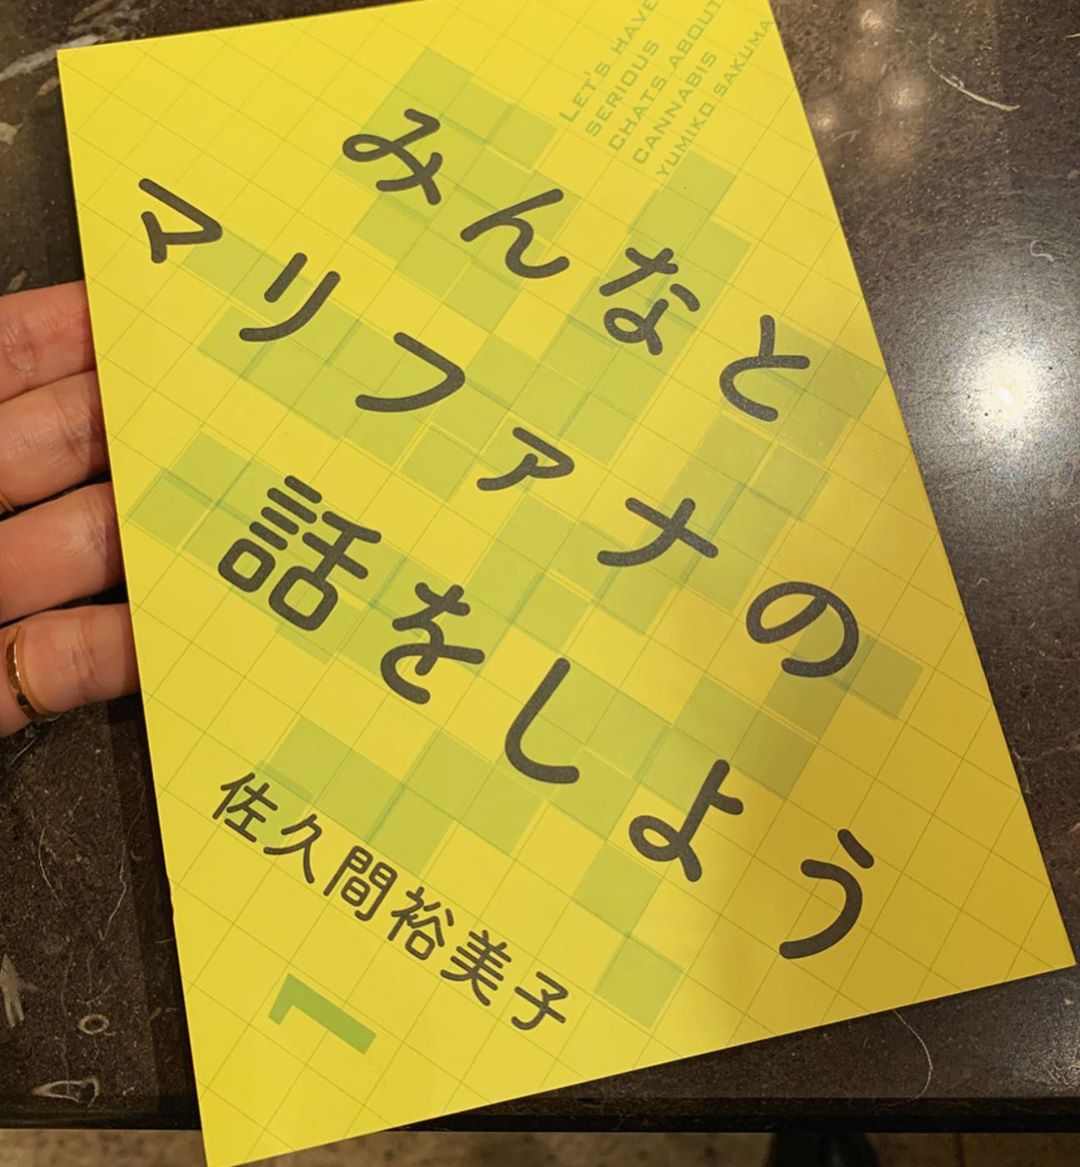 LET'S HAVE
SERIOUS
CHATS ABOUT
CANNABIS
YUMIKO SAKUMA
みんなと
マリファナの
話をしよう
佐久間裕美子
1